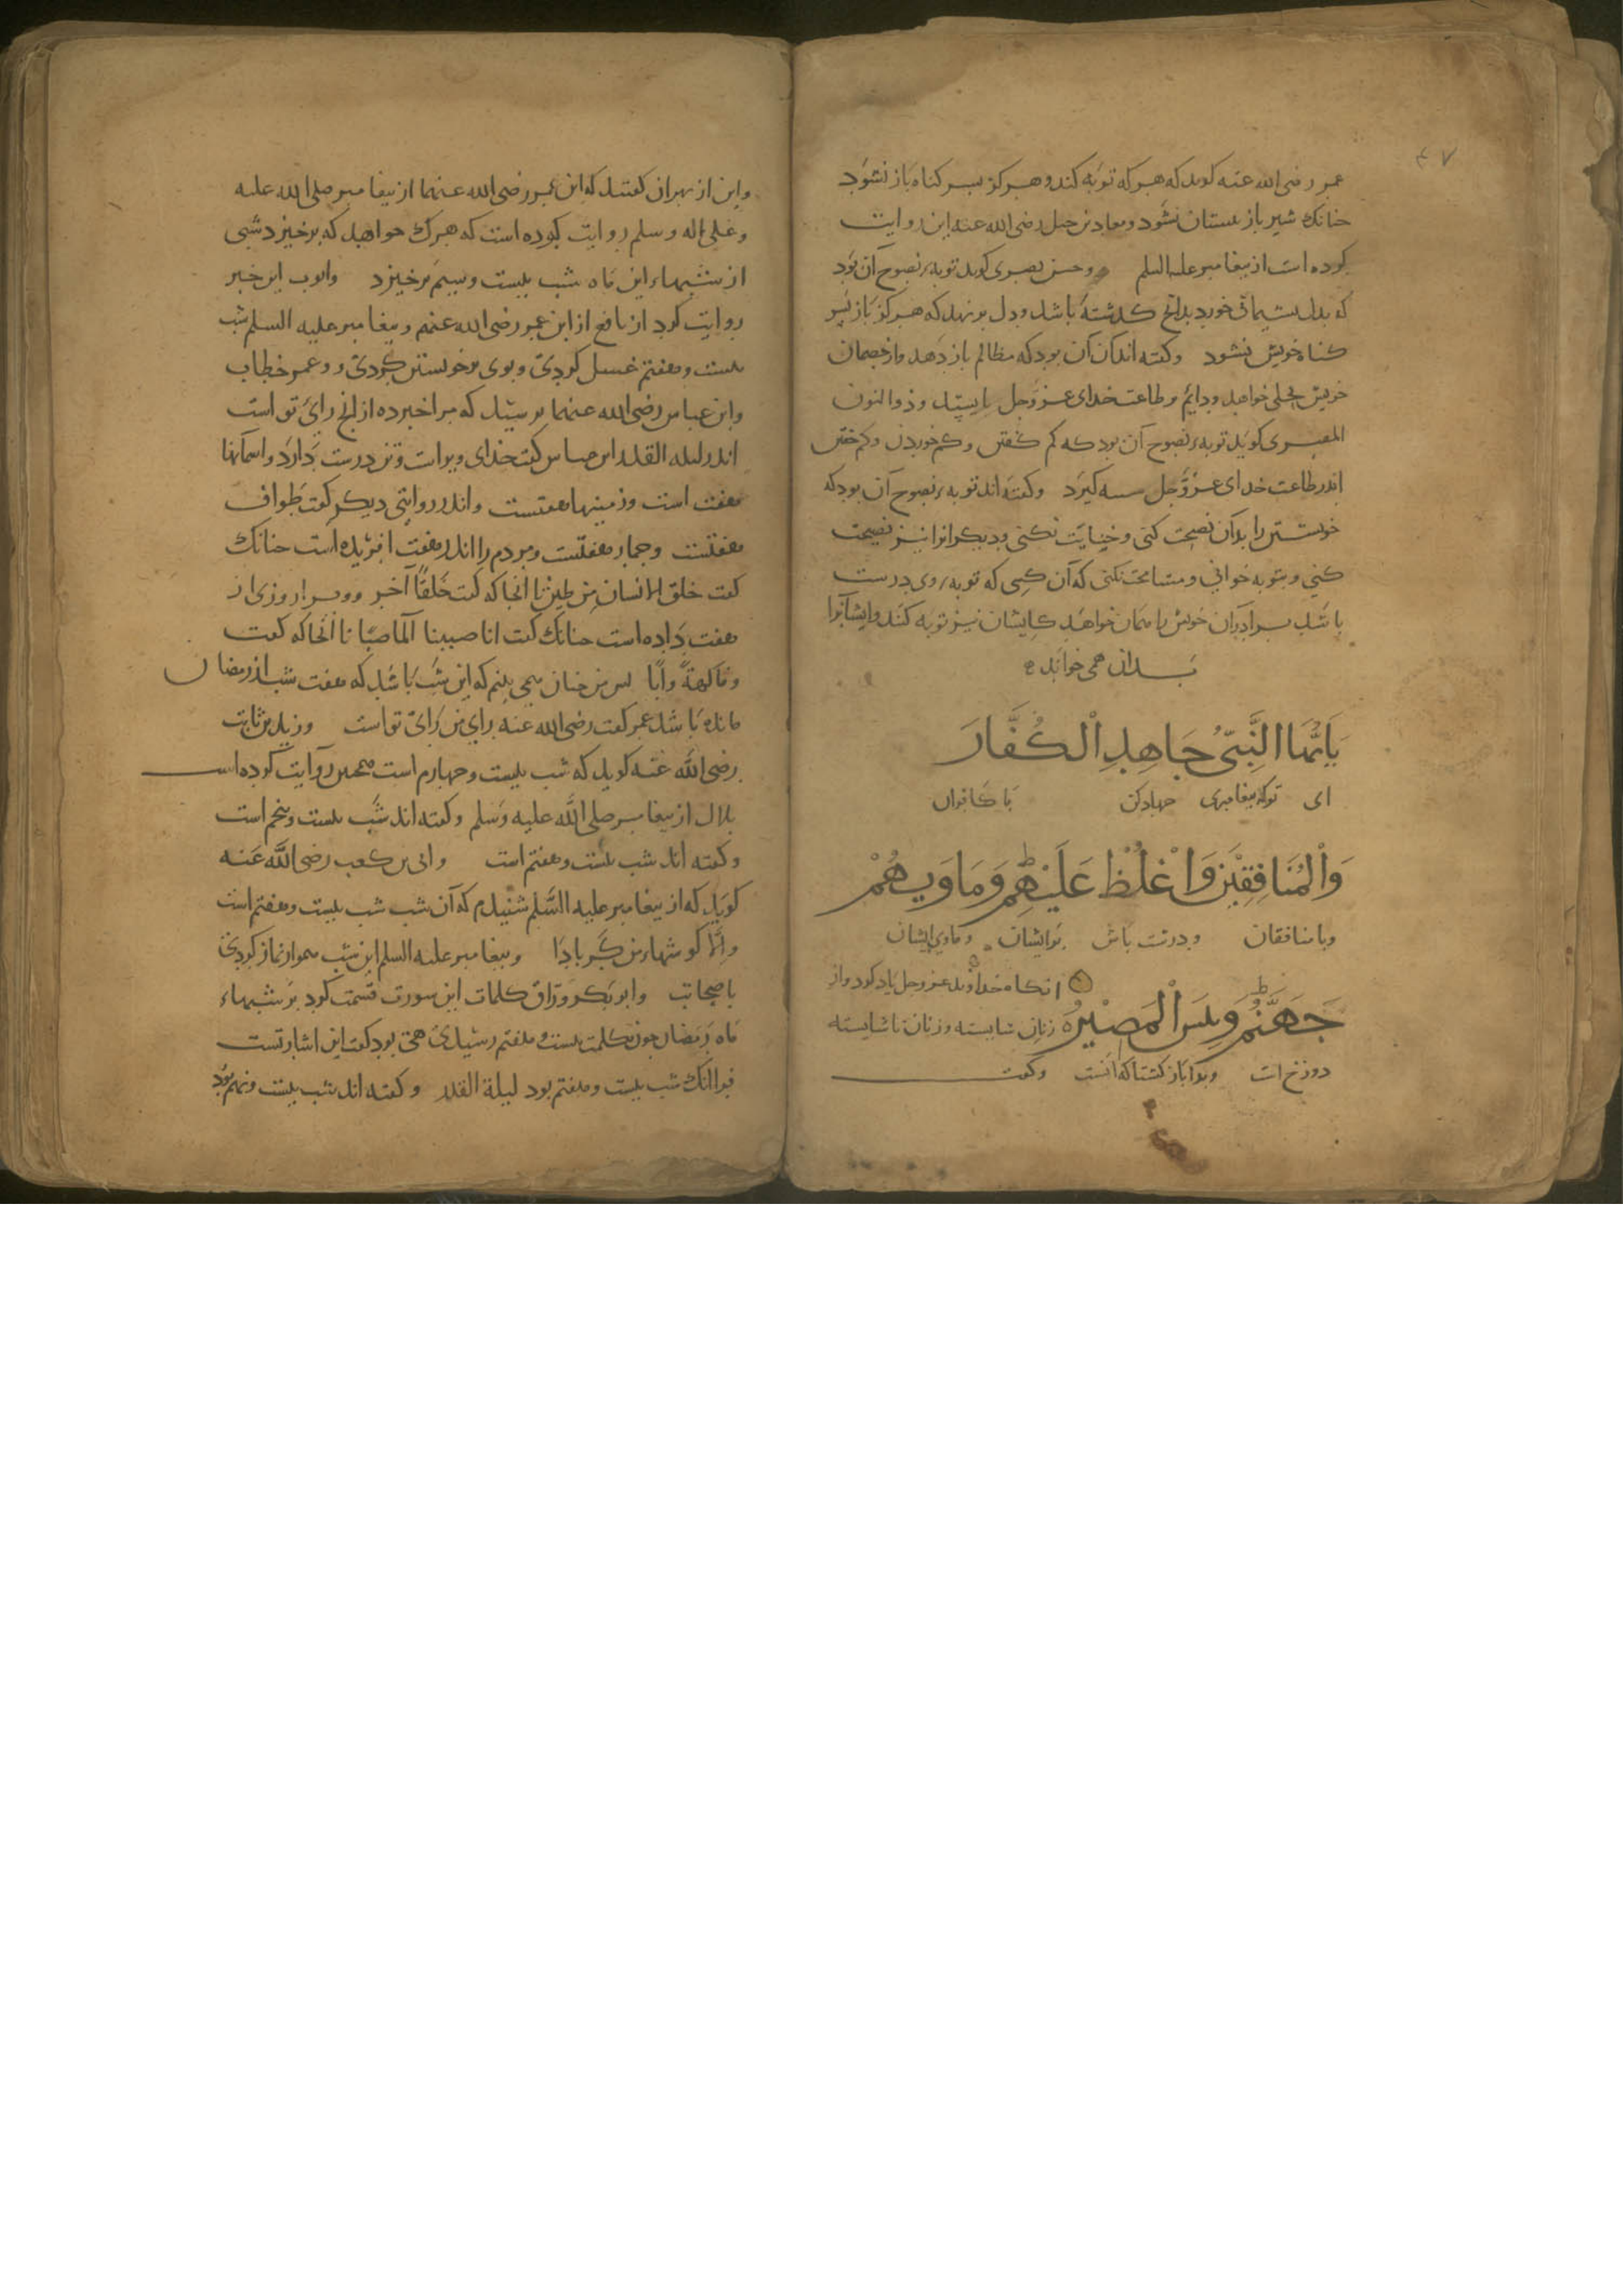 ٤٧
عمر رضی الله عنه کوید که هر که توبه کند و هرکز بسر کناه باز نشود
جنانک شیر باز بستان نشود و معاذ بن جبل رضی الله عنه این روایت
کرده است از بیغامبر علیه السلم و حسن بصری کوید توبهٔ نصوح آن بود
که بدل بشیمانی خورد بدانج کذشته باشد و دل بر نهد که هرکز باز بسر
کناه خویش نشود و کفته اند کی آن بود که مظالم باز دهد و از خصمان
خویش بحلی خواهد و دایم بر طاعت خدای عزوجل بایستد و ذوالنون
المصری کوید توبهٔ نصوح آن بود که کم کفتن و کم خوردن و کم خفتن
اندر طاعت خدای عزوجل کیرد و کفته اند توبهٔ نصوح آن بود که
خویشتن را بدان نصیحت کنی و خیانت نکنی و دیکرانرا نیز نصیحت
کنی و بتوبه خوانی و مسامحت نکنی که آن کسی که توبهٔ وی درست
باشد برادران خویش را همان خواهد کایشان نیز توبه کنند و ایشانرا
بدان همی خواند
یَاَیُّهَا النَّبِیُّ جَاهِدِ الْکُفَّارَ
ای توکه بیغامبری جهاد کن با کافران
وَالْمُنَافِقِیْنَ وَاغْلُظْ عَلَیْهِمْ ط وَمَاوَیهُمْ
و با منافقان و درشت باش برایشان و ماوی ایشان
جَهَنَّمُ ط وَبِئْسَ الْمَصِیْرُ ه
انکاه خداوند عزوجل یاد کرد و از
زنان شایسته و زنان ناشایسته
دوزخ است و بدا باز کشتاکه انست و کفت
و این از بهران کفتند که ابن عمر رضی الله عنهما از بیغامبر صلی الله علیه
و علی اله و سلم روایت کرده است که هرک خواهد که برخیزد شبی
از شبهاء این ماه شب بیست و سیم برخیزد و ایوب این خبر
روایت کرد از نافع از ابن عمر رضی الله عنهم و بیغامبر علیه السلم شب
بیست و هفتم غسل کردی و بوی بر خویشتن کردی و عمر خطاب
و ابن عباس رضی الله عنهما برسید که مرا خبر ده از انج رای تو است
اندر لیله القدر ابن عباس کفت خدای وتر است و وتر دوست دارد و اسمانها
هفت است و زمینها هفتست و اندر روایتی دیکر کفت طواف
هفتست و جمار هفتست و مردم را اندر هفت افریده است جنانک
کفت خلق الانسان من طین تا انجا که کفت خَلْقًا آخر و مر او را روزی از
هفت داده است جنانک کفت انا صببنا الما صبًا تا انجا که کفت
و فاکهةً و اَبًا بس من جنان همی بینم که این شب باشد که هفت شب از رمضان
مانده باشد عمر کفت رضی الله عنه رای من رای تو است و زید بن ثابت
رضی الله عنه کوید که شب بیست و جهارم است همجنین روایت کرده است
بلال از بیغامبر صلی الله علیه و سلم و کفته اند شب بیست و بنجم است
و کفته اند شب بیست و هفتم است و ابی بن کعب رضی الله عنه
کوید که از بیغامبر علیه السلم شنیدم که آن شب شب بیست و هفتم است
و الا کوشهاء من کر بادا و بیغامبر علیه السلم این شب هموار نماز کردی
با صحابه و ابوبکر وراق کلمات این سورت قسمت کرد بر شبهاء
ماه رمضان جون بکلمت بیست و هفتم رسید هی بود کفت این اشارتست
فرا انک شب بیست و هفتم بود لیلة القدر و کفته اند شب بیست و نهم بود